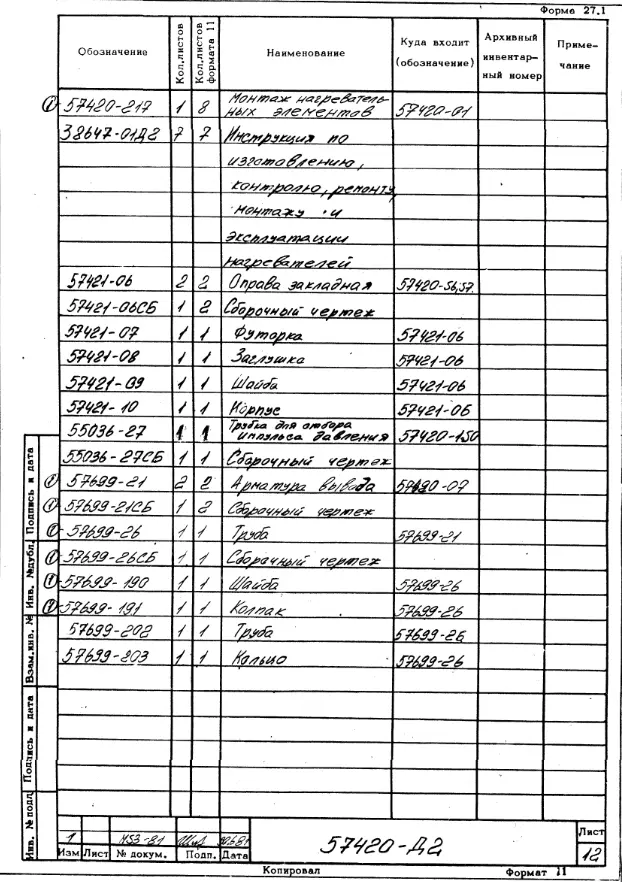 Форма 27.1
Обозначение Кол.листов Кол.листов формата 11 Наименование Куда входит (обозначение) Архивный инвентарный номер Примечание
① 57420-217 1 8 Монтаж нагреватель-
ных элементов 57420-01
38647-01Д2 7 7 Инструкция по
изготовлению,
контролю, ремонту,
монтажу и
эксплуатации
нагревателей
57421-06 2 2 Оправа закладная 57420-56,57
57421-06СБ 1 2 Сборочный чертеж
57421-07 1 1 Футорка 57421-06
57421-08 1 1 Заглушка 57421-06
57421-09 1 1 Шайба 57421-06
57421-10 1 1 Корпус 57421-06
55036-27 1 1 Трубка для отбора
импульса давления 57420-150
55036-27СБ 1 1 Сборочный чертеж
① 57699-21 2 2 Арматура вывода 57420-07
① 57699-21СБ 1 2 Сборочный чертеж
① 57699-26 1 1 Труба 57699-21
① 57699-26СБ 1 1 Сборочный чертеж
① 57699-190 1 1 Шайба 57699-26
① 57699-191 1 1 Колпак 57699-26
57699-202 1 1 Труба 57699-26
57699-203 1 1 Кольцо 57699-26
Подпись и дата
Инв. №дубл.
Взам.инв. №
Подпись и дата
Инв. № подл
1 МS3-81
Изм Лист № докум. Подп. Дата
57420-Д2
Лист
12
Копировал Формат 11